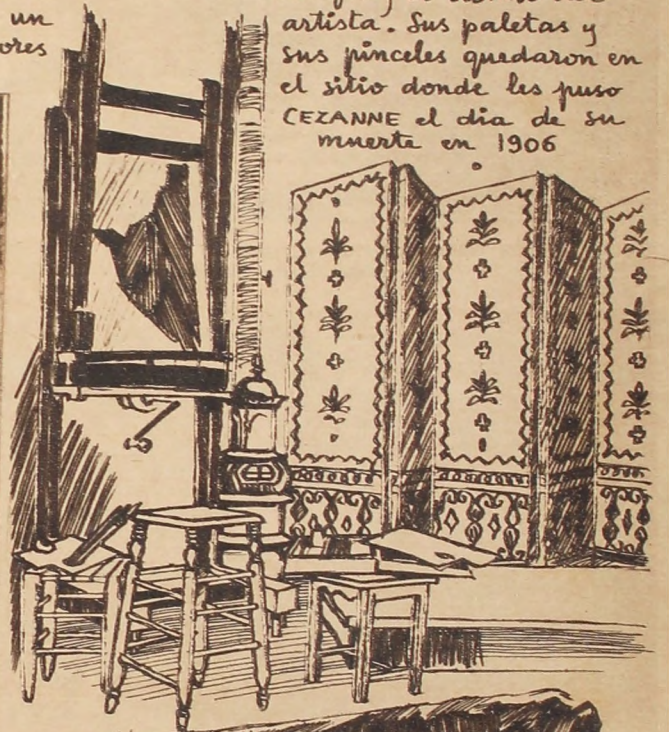 un
ores
artista. Sus paletas y
sus pinceles quedaron en
el sitio donde les puso
CEZANNE el dia de su
muerte en 1906